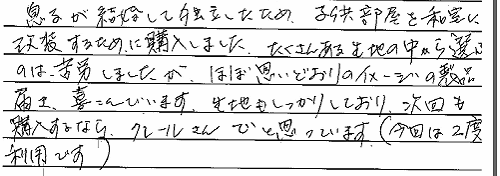 息子が結婚して独立したため、子供部屋を和室に
改修するために購入しました。たくさんある生地の中から選ぶ
のは、苦労しましたが ほぼ思いどおりのイメージの製品
届き、喜んでいます。生地もしっかりしており、次回も
購入するなら、クレールさんでと思っています(今回は2度
利用です)